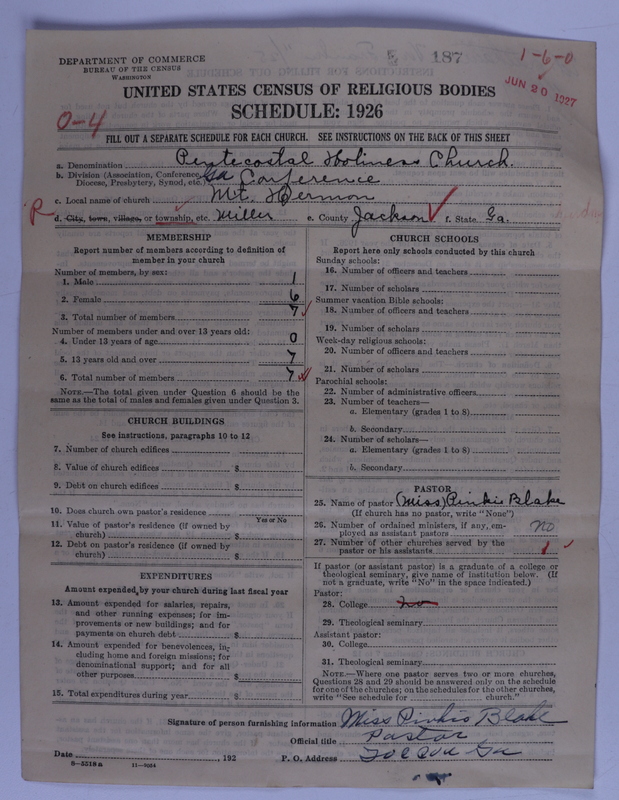 DEPARTMENT OF COMMERCE
BUREAU OF THE CENSUS
WASHINGTON
187
1-6-0
JUN 20 1927
UNITED STATES CENSUS OF RELIGIOUS BODIES
SCHEDULE: 1926
0-4
FILL OUT A SEPARATE SCHEDULE FOR EACH CHURCH. SEE INSTRUCTIONS ON THE BACK OF THIS SHEET
a. Denomination Pentecostal Holiness Church.
b. Division (Association, Conference, Diocese, Presbytery, Synod, etc.) Ga Conference
c. Local name of church Mt. Hermon
R
d. City, town, village, or township, etc. Miller e. County Jackson f. State Ga.
MEMBERSHIP
Report number of members according to definition of
member in your church
Number of members, by sex:
1. Male 1
2. Female 6
3. Total number of members 7
Number of members under and over 13 years old:
4. Under 13 years of age 0
5. 13 years old and over 7
6. Total number of members 7
NOTE.—The total given under Question 6 should be
same as the total of males and females given under Question 3.
CHURCH BUILDINGS
See instructions, paragraphs 10 to 12
7. Number of church edifices
8. Value of church edifices $
9. Debt on church edifices $
10. Does church own pastor's residence
Yes or No
11. Value of pastor's residence (if owned by
church) $
12. Debt on pastor's residence (if owned by
church) $
EXPENDITURES
Amount expended by your church during last fiscal year
13. Amount expended for salaries, repairs,
and other running expenses; for im-
provements or new buildings; and for
payments on church debt $
14. Amount expended for benevolences, in-
cluding home and foreign missions; for
denominational support; and for all
other purposes $
15. Total expenditures during year $
CHURCH SCHOOLS
Report here only schools conducted by this church
Sunday schools:
16. Number of officers and teachers
17. Number of scholars
Summer vacation Bible schools:
18. Number of officers and teachers
19. Number of scholars
Week-day religious schools:
20. Number of officers and teachers
21. Number of scholars
Parochial schools:
22. Number of administrative officers
23. Number of teachers—
a. Elementary (grades 1 to 8)
b. Secondary
24. Number of scholars—
a. Elementary (grades 1 to 8)
b. Secondary
PASTOR
25. Name of pastor (Miss) Pinkie Blake
(If church has no pastor, write "None")
26. Number of ordained ministers, if any, em-
ployed as assistant pastors no
27. Number of other churches served by the
pastor or his assistants 1
If pastor (or assistant pastor) is a graduate of a college or
theological seminary, give name of institution below. (If
not a graduate, write "No" in the space indicated.)
Pastor:
28. College no
29. Theological seminary
Assistant pastor:
30. College
31. Theological seminary
NOTE.—Where one pastor serves two or more churches,
Questions 28 and 29 should be answered only on the schedule
for one of the churches; on the schedules for the other churches,
write "See schedule for church."
Signature of person furnishing information Miss Pinkie Blake
Official title Pastor
Date , 192 P. O. Address Toccoa Ga
8-5318a 11-9054